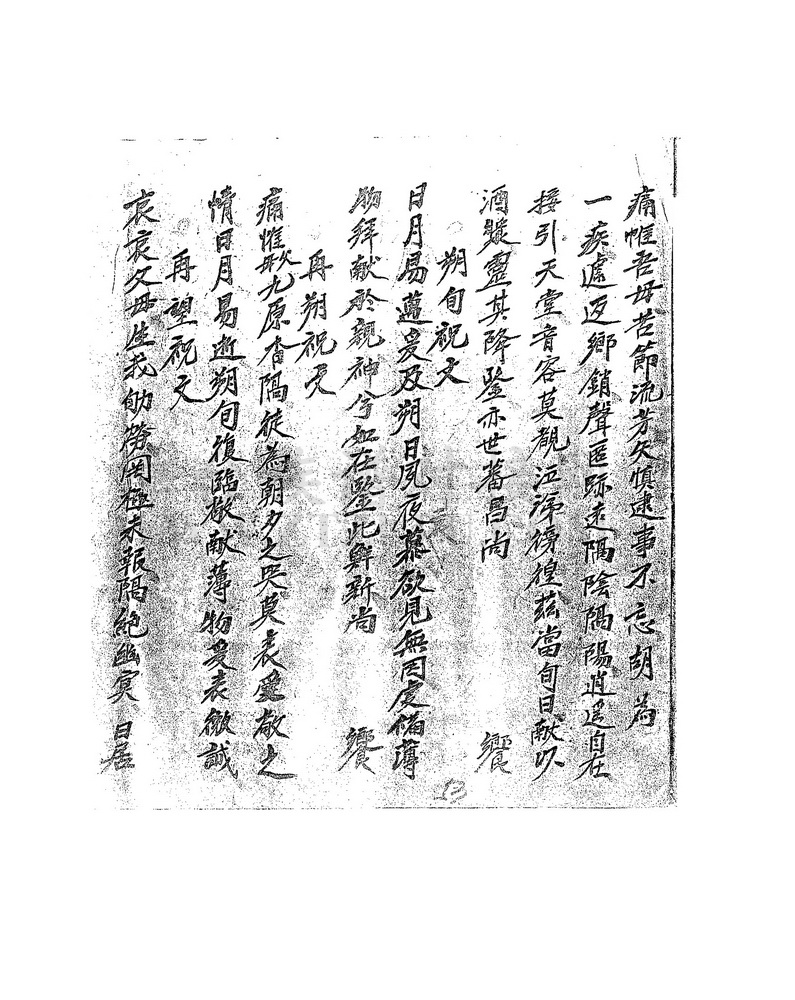 痛惟吾母苦節流芳矢慎逮事不忘胡為
一疾遽返鄉銷聲匿跡遠隔陰陽逍遙自在
接引天堂音容莫覩泣涕徬徨茲當旬日献以
酒漿靈其降鑒亦世蕃昌尚 饗
朔旬祝文
日月易邁爰及朔日夙夜慕欲見無因虔備薄
物拜献於親神兮如在鑒此鮮新尚 饗
再朔祝文
痛惟九原杳隔徒為朝夕之哭莫表愛敬之
情日月易逝朔旬復臨敬献薄物爰表微誠
再望祝文
哀哀父母生我劬勞罔極未報隔絶幽冥 日居